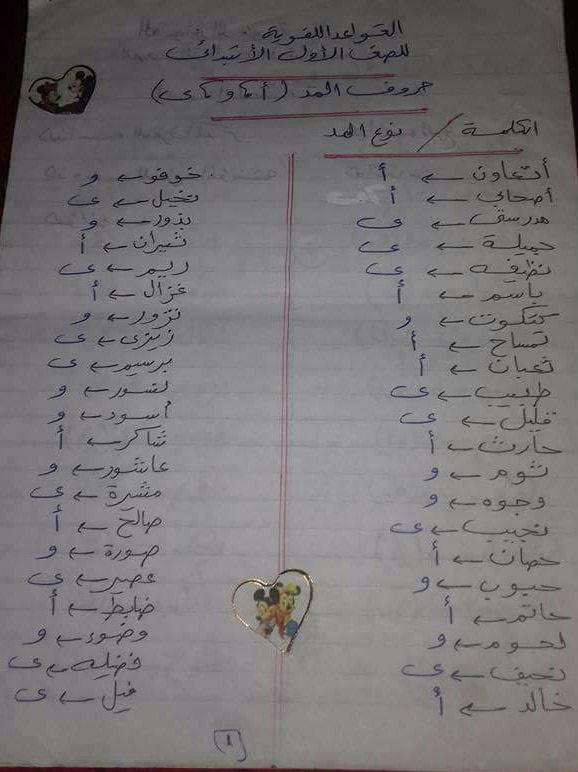 القواعد اللغوية
للصف الأول الأبتدائى
حروف المد (أ، و، ى)
الكلمة / نوع المد
أتعاون ← أ
أصحابى ← أ
مدرستى ← ى
جميلة ← ى
نظيفه ← ى
باسم ← أ
كتكوت ← و
تمساح ← أ
ثعبان ← أ
طبيب ← ى
قليل ← ى
حارث ← أ
ثوم ← و
وجوه ← و
نجيب ← ى
حصان ← أ
حبوب ← و
خاتم ← أ
لحوم ← و
نحيف ← ى
خالد ← أ
خوفو ← و
نخيل ← ى
بذور ← و
ثيران ← أ
ريم ← ى
غزال ← أ
نزور ← و
زينى ← ى
برسيم ← ى
نسور ← و
أسود ← و
شاكر ← أ
عاشور ← و
منشرة ← ى
صالح ← أ
صورة ← و
عصير ← ى
ضابط ← أ
وضوء ← و
فضيله ← ى
فيل ← ى
(١)